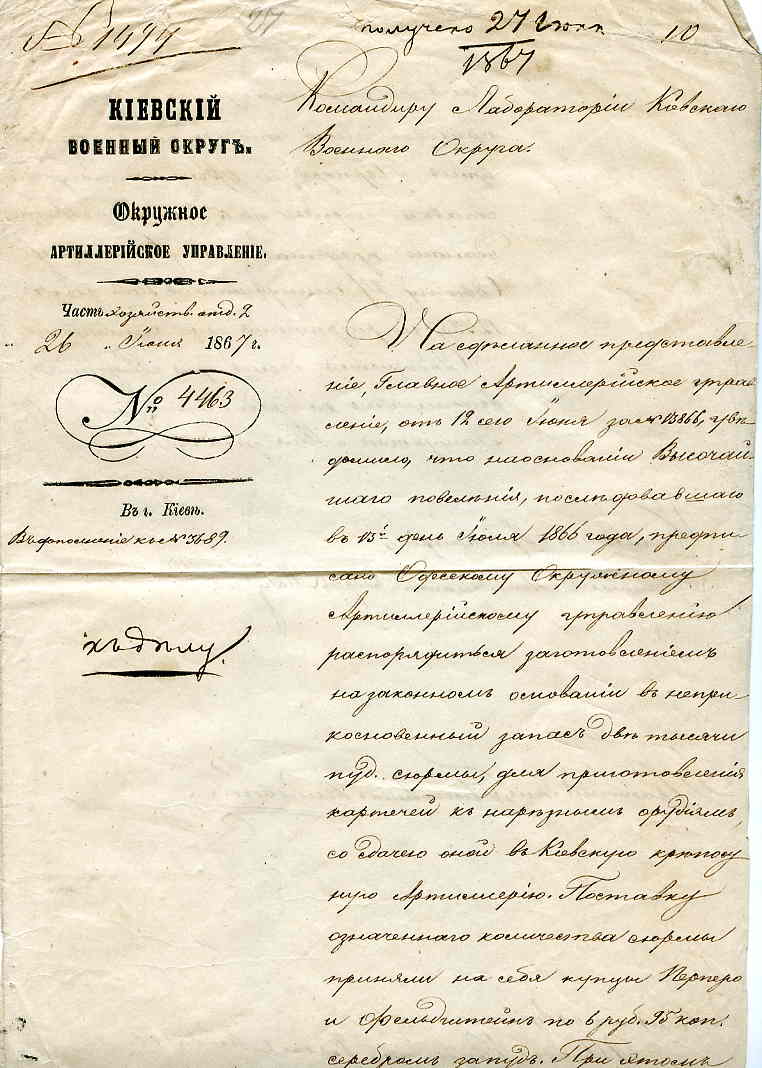 № 1494
получено 27 Июня
1867
10
КІЕВСКІЙ
ВОЕННЫЙ ОКРУГЪ.
Окружное
АРТИЛЛЕРІЙСКОЕ УПРАВЛЕНІЕ.
Часть хозяйств. отд. 2
26 Іюня 1867 г.
№ 4463
Въ г. Кіевѣ.
Въ дополненіе къ № 3689.
къ дѣлу.
Командиру Лабораторіи Кіевскаго
Военнаго Округа.
На сдѣланное представле-
ніе, Главное Артиллерійское управ-
леніе, отъ 12 сего Іюня за № 13866, увѣ-
домило, что на основаніи Высочай-
шаго повелѣнія, послѣдовавшаго
въ 15й день Іюля 1866 года, предпи-
сано Одесскому Окружному
Артиллерійскому управленію
распорядиться заготовленіемъ
на законномъ основаніи въ непри-
косновенный запасъ двѣ тысячи
пуд. сюрмы, для приготовленія
картечей къ нарѣзнымъ орудіямъ,
со сдачею оной въ Кіевскую крѣпост-
ную Артиллерію. Поставку
означеннаго количества сюрмы
приняли на себя купцы Перперо
и Фельдштейнъ по 6 руб. 95 коп.
серебромъ за пудъ. При этомъ